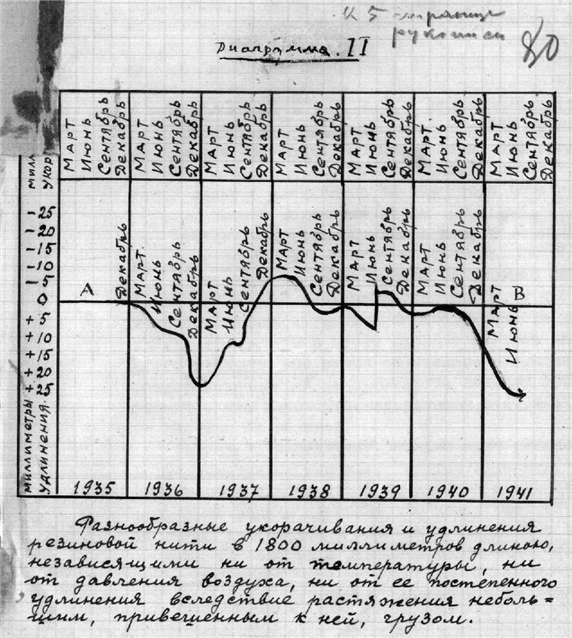 к 5 странице
рукописи
80
Диаграмма. II
Март Июнь Сентябрь Декабрь Март Июнь Сентябрь Декабрь Март Июнь Сентябрь Декабрь Март Июнь Сентябрь Декабрь Март Июнь Сентябрь Декабрь Март Июнь Сентябрь Декабрь Март Июнь Сентябрь Декабрь
-25
-20
-15
-10
-5
0
+5
+10
+15
+20
+25
А
В
Декабрь Март Июнь Сентябрь Декабрь Март Июнь Сентябрь Декабрь Март Июнь Сентябрь Декабрь Март Июнь Сентябрь Декабрь Март Июнь Сентябрь Декабрь Март Июнь
миллиметры
удлинения.
1935 1936 1937 1938 1939 1940 1941
Разнообразные укорачивания и удлинения
резиновой нити в 1800 миллиметров длиною,
независящими ни от температуры, ни
от давления воздуха, ни от ее постепенного
удлинения вследствие растяжения неболь=
шим, привешенным к ней, грузом.